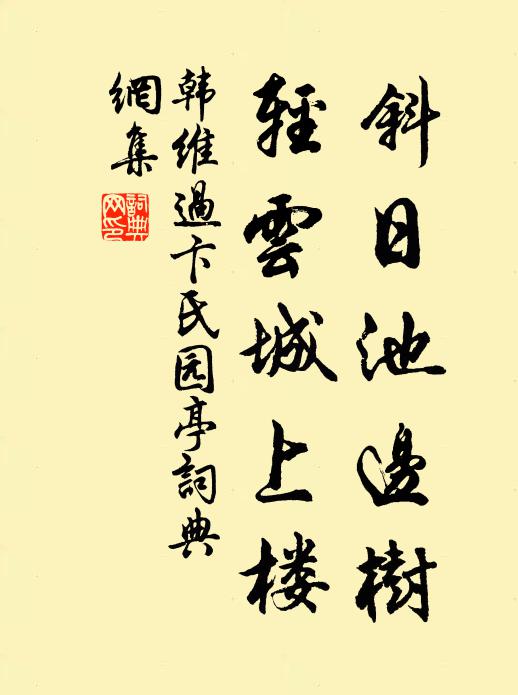 斜日池邊樹
輕雲城上楼
韩維過卞氏园亭詞典
網集
詞典
网印